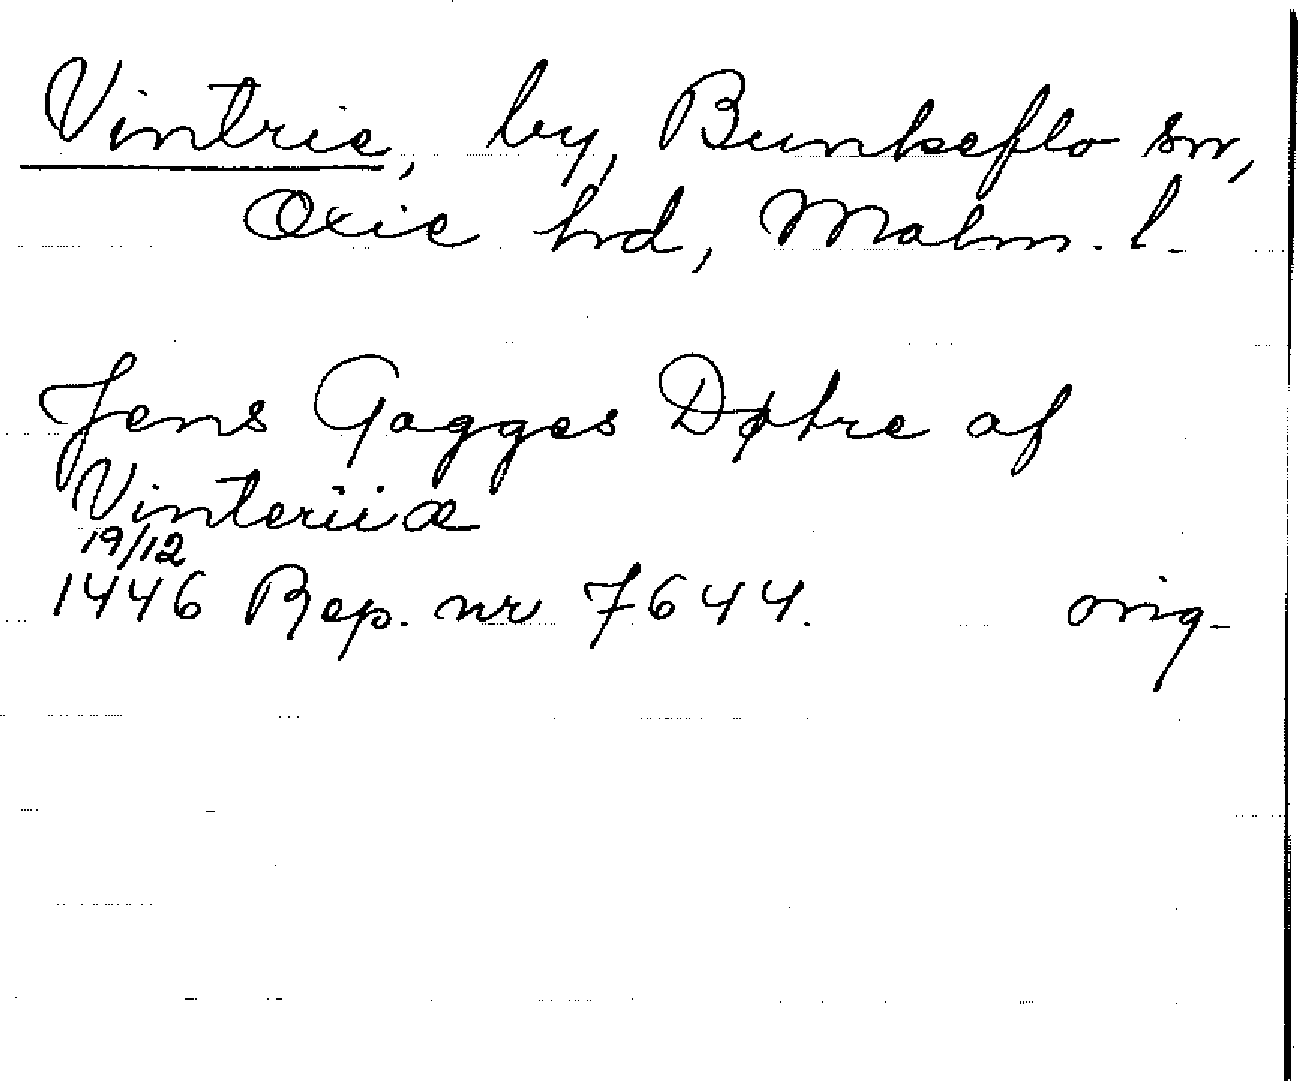 Vintrie, by, Bunkeflo sn,
Oxie hrd, Malm. l.
Jens Gagges Døtre af
Vinteriiæ
19/12
1446 Rep. nr 7644. orig.